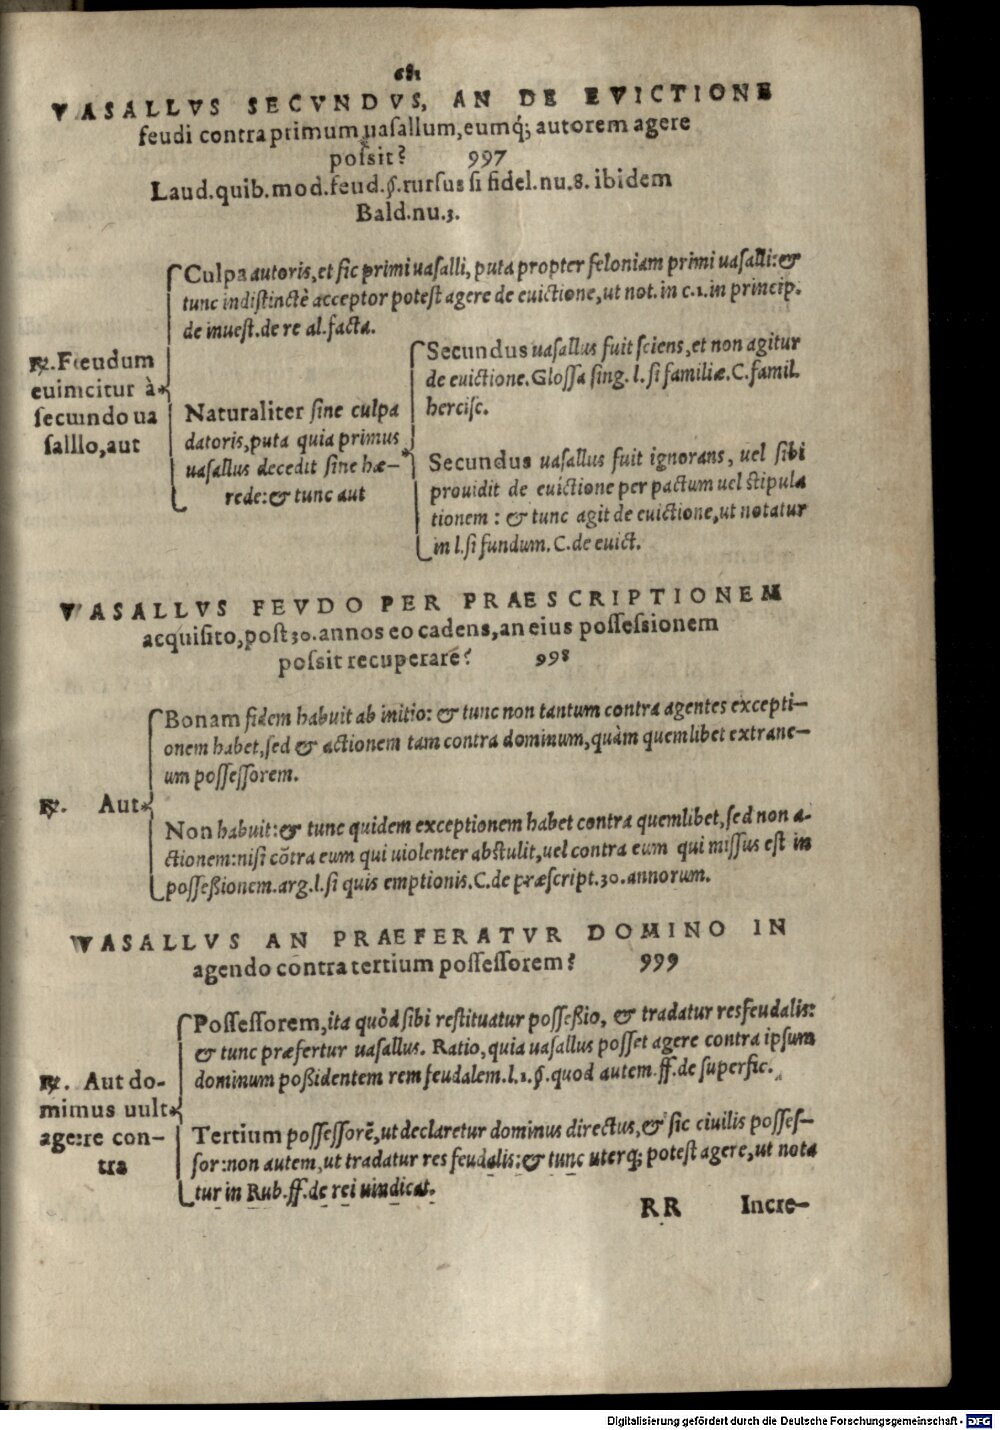 VASALLVS SECVNDVS, AN DE EVICTIONE
feudi contra primum uasallum, eumq́; autorem agere
possit? 997
Laud. quib. mod. feud. §. rursus si fidel. nu. 8. ibidem
Bald. nu. 3.
℞. Feudum
euimcitur à
secumdo ua
salllo, aut
Culpa autoris, et sic primi uasalli, puta propter feloniam primi uasalli: &
tunc indistinctè acceptor potest agere de euictione, ut not. in c. 1. in princip.
de inuest. de re al. facta.
Naturaliter sine culpa
datoris, puta quia primus
uasallus decedit sine hæ-
rede: & tunc aut
Secundus uasallus fuit sciens, et non agitur
de euictione. Glossa sing. l. si familiæ. C. famil.
hercisc.
Secundus uasallus fuit ignorans, uel sibi
prouidit de euictione per pactum uel stipula
tionem: & tunc agit de euictione, ut notatur
in l. si fundum. C. de euict.
VASALLVS FEVDO PER PRAESCRIPTIONEM
acquisito, post 30. annos eo cadens, an eius possessionem
possit recuperare? 998
℞. Aut
Bonam fidem habuit ab initio: & tunc non tantum contra agentes excepti-
onem habet, sed & actionem tam contra dominum, quàm quemlibet extrane-
um possessorem.
Non habuit: & tunc quidem exceptionem habet contra quemlibet, sed non a-
ctionem: nisi cõtra eum qui uiolenter abstulit, uel contra eum qui missus est in
possessionem. arg. l. si quis emptionis. C. de præscript. 30. annorum.
VASALLVS AN PRAEFERATVR DOMINO IN
agendo contra tertium possessorem? 999
℞. Aut do-
mimus uult
agere con-
tra
Possessorem, ita quòd sibi restituatur possessio, & tradatur res feudalis:
& tunc præfertur uasallus. Ratio, quia uasallus posset agere contra ipsum
dominum possidentem rem feudalem. l. 1. §. quod autem. ff. de superfic.
Tertium possessorẽ, ut declaretur dominus directus, & sic ciuilis posses-
sor: non autem, ut tradatur res feudalis: & tunc uterq; potest agere, ut nota
tur in Rub. ff. de rei uindicat.
RR Incre-
Digitalisierung gefördert durch die Deutsche Forschungsgemeinschaft - DFG